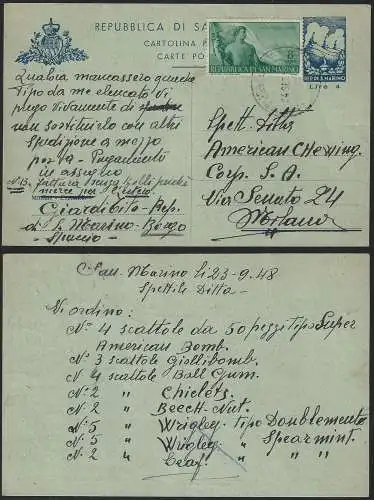 REPUBBLICA DI SA
CARTOLINA P
CARTE PO
REPUBBLICA DI SAN MARINO
REP. DI S. MARINO
LIRE 4
Qualora mancassero qualche
Tipo da me elencato Vi
prego vivamente di
non sostituirlo con altri
Spedizione a mezzo
posta - Pagamenti
in assegno
N.B. fattura senza bolli perchè
merce per l'Estero
Giardi Bita - Rep.
di S. Marino - Borgo
Spaccio -
Spett. Ditta
American Chewing
Corp. S. A.
Via Senato 24
Milano
San Marino li 23-9-48
Spettile Ditta -
Vi ordino:
N° 4 scattole da 50 pezzi Tipo Super
American Bomb.
N° 3 scattole Giollibomb.
N 4 scattole Ball Gum.
N° 2 " Chiclets.
N° 2 " Beech-Nut.
N° 5 " Wrigley - Tipo Doublemente
N° 5 " Wrigley " Spearmint.
N° 2 " " "